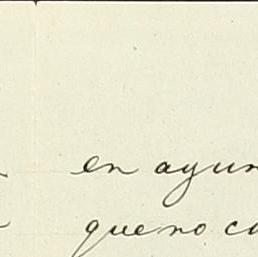 en ayun
que no co